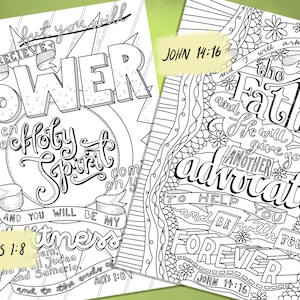 but you will
RECEIVE
POWER
Holy
Spirit
come
on
AND YOU WILL BE MY
witnesses
Judea
Samaria,
and to the ends of
ACTS 1:8
S 1:8
JOHN 14:16
will ask
the
Father
and He will
give you
ANOTHER
advocate
TO HELP YOU
and BE with YOU
FOREVER
JOHN 14:16